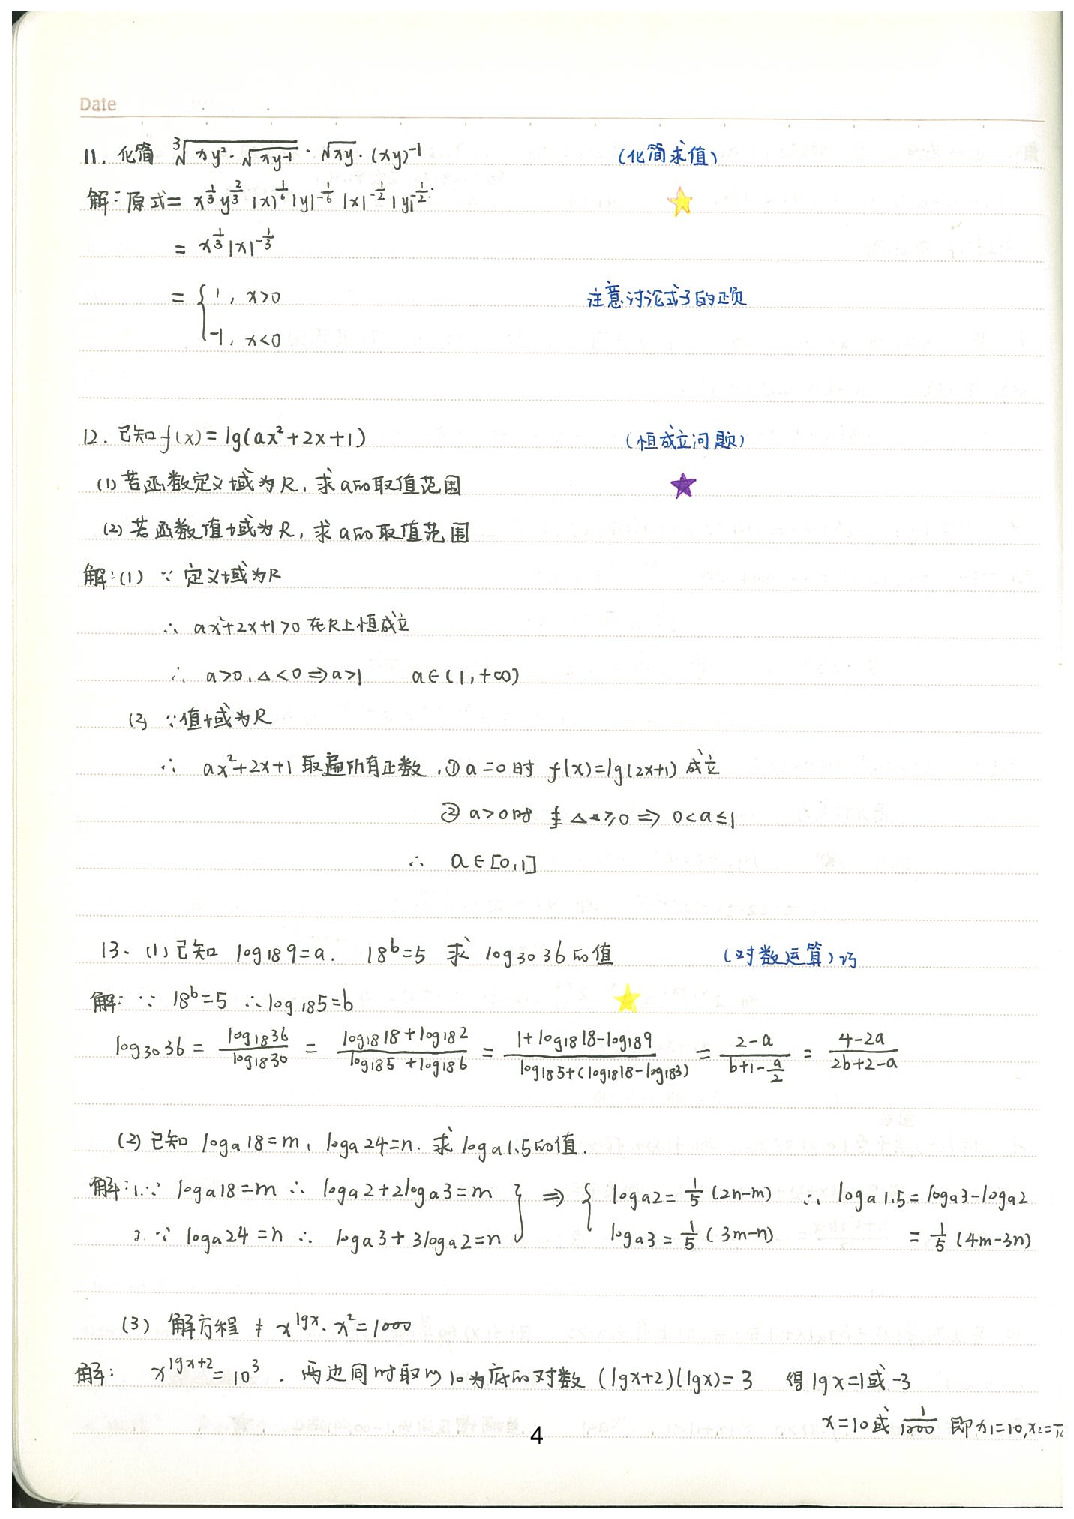 Date
11. 化简 ∛(xy²·√(xy⁻¹)) · √xy · (xy)⁻¹ (化简求值)
解:原式= x^(1/3) y^(2/3) |x|^(1/6) |y|^(-1/6) |x|^(-1/2) |y|^(-1/2)
= x^(1/3) |x|^(-1/3)
= { 1, x>0 注意讨论式子的正负
-1, x<0
12. 已知f(x)=lg(ax²+2x+1) (恒成立问题)
(1) 若函数定义域为R, 求a的取值范围
(2) 若函数值域为R, 求a的取值范围
解:(1) ∵ 定义域为R
∴ ax²+2x+1>0 在R上恒成立
∴ a>0, Δ<0 ⇒ a>1 a∈(1,+∞)
(2) ∵值域为R
∴ ax²+2x+1 取遍所有正数, ① a=0时 f(x)=lg(2x+1) 成立
② a>0时 Δ≥0 ⇒ 0<a≤1
∴ a∈[0,1]
13、(1)已知 log₁₈9=a. 18^b=5 求 log₃₀36的值 (对数运算)巧
解: ∵ 18^b=5 ∴log₁₈5=b
log₃₀36 = log₁₈36/log₁₈30 = (log₁₈18+log₁₈2)/(log₁₈5+log₁₈6) = (1+log₁₈18-log₁₈9)/(log₁₈5+(log₁₈18-log₁₈3)) = (2-a)/(b+1-a/2) = (4-2a)/(2b+2-a)
(2)已知 logₐ18=m, logₐ24=n. 求logₐ1.5的值.
解:1.∵ logₐ18=m ∴ logₐ2+2logₐ3=m } ⇒ { logₐ2=1/5(2n-m) ∴ logₐ1.5=logₐ3-logₐ2
2.∵ logₐ24=n ∴ logₐ3+3logₐ2=n logₐ3=1/5(3m-n) =1/5(4m-3n)
(3) 解方程 x^(lgx)·x²=1000
解: x^(lgx+2)=10³. 两边同时取以10为底的对数 (lgx+2)(lgx)=3 得lgx=1或-3
x=10或1/1000 即x₁=10,x₂=
4